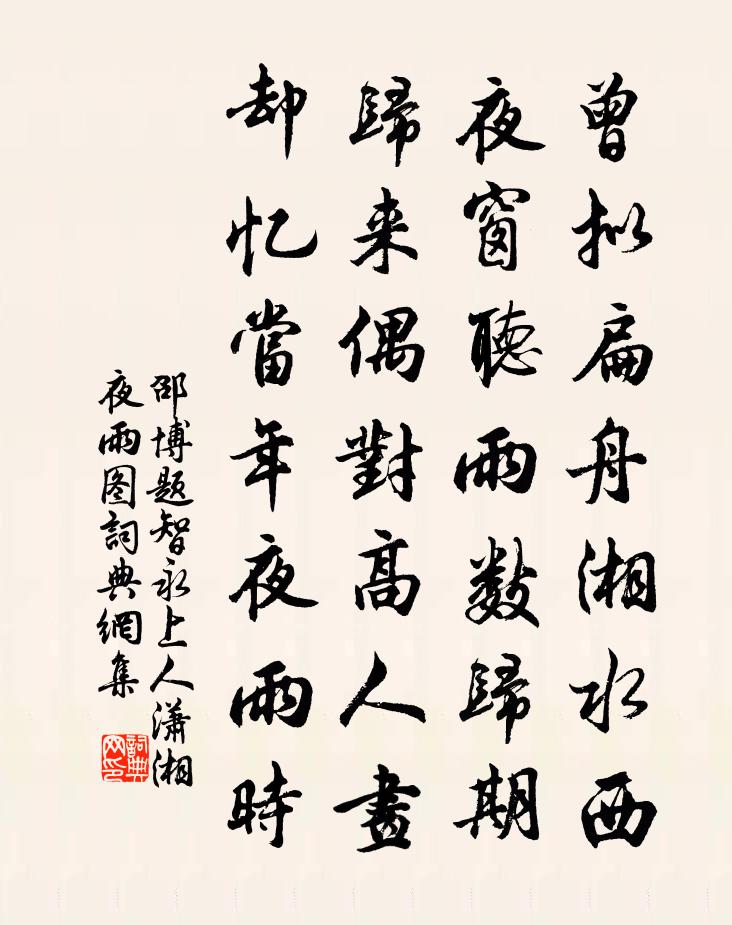 曾拟扁舟湘水西
夜窗聽雨数歸期
歸来偶對高人畫
却忆當年夜雨時
邵博题智永上人瀟湘
夜雨图詞典網集
詞典
网印